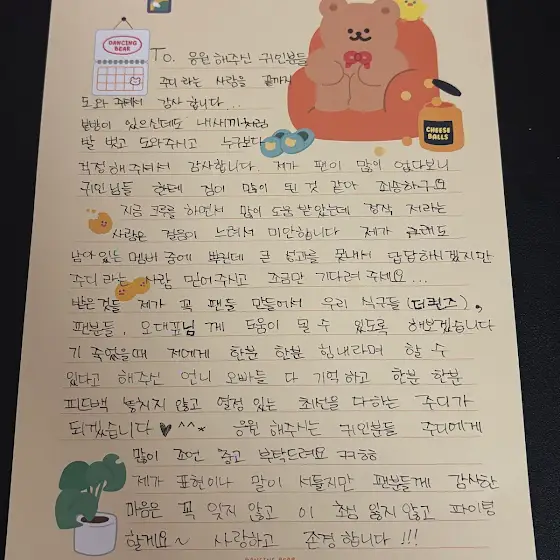 DANCING
BEAR
To. 응원 해주신 귀인분들
주디 라는 사람을 끝까지
도와 주셔서 감사 합니다...
본방이 있으신데도 내새끼처럼
발 벗고 도와주시고 누구보다
CHEESE
BALLS
걱정해 주셔서 감사합니다. 제가 팬이 많이 없다보니
귀인님들 한테 짐이 많이 된 것 같아 죄송하구요
지금 크루를 하면서 많이 도움 받았는데 정작 저라는
사람은 걸음이 느려서 미안합니다 제가 그래도
남아 있는 멤버 중에 뽑힌데 큰 성과를 못내서 답답하시겠지만
주디 라는 사람 믿어주시고 조금만 기다려 주세요...
받은것들 제가 꼭 팬들 만들어서 우리 식구들 (더퀸즈),
팬분들, 오대표님 께 도움이 될 수 있도록 해보겠습니다
기 죽었을때 저에게 한분 한분 힘내라며 할 수
있다고 해주신 언니 오빠들 다 기억하고 한분 한분
피드백 놓치지 않고 열정 있는 최선을 다하는 주디가
되겠습니다 ♥ ^^* 응원 해주시는 귀인분들 주디에게
많이 조언 좀 부탁드려요
제가 표현이나 말이 서툴지만 팬분들께 감사한
마음은 꼭 잊지 않고 이 초심 잃지 않고 파이팅
할게요~ 사랑하고 존경합니다 !!!
DANCING BEAR